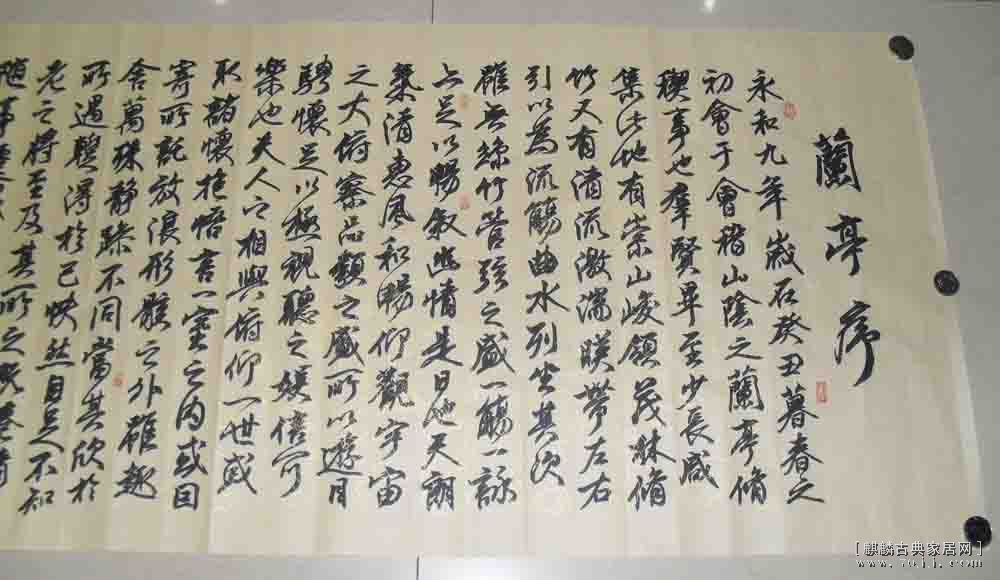 蘭亭序
永和九年歲在癸丑暮春之
初會于會稽山陰之蘭亭脩
禊事也羣賢畢至少長咸
集此地有崇山峻領茂林脩
竹又有清流激湍暎帶左右
引以為流觴曲水列坐其次
雖無絲竹管弦之盛一觴一詠
亦足以暢叙幽情是日也天朗
氣清惠風和暢仰觀宇宙
之大俯察品類之盛所以遊目
騁懷足以極視聽之娛信可
樂也夫人之相與俯仰一世或
取諸懷抱悟言一室之內或因
寄所託放浪形骸之外雖趣
舍萬殊靜躁不同當其欣於
所遇蹔得於己快然自足不知
老之將至及其所之既惓情
隨事遷感
[麒麟古典家居网]